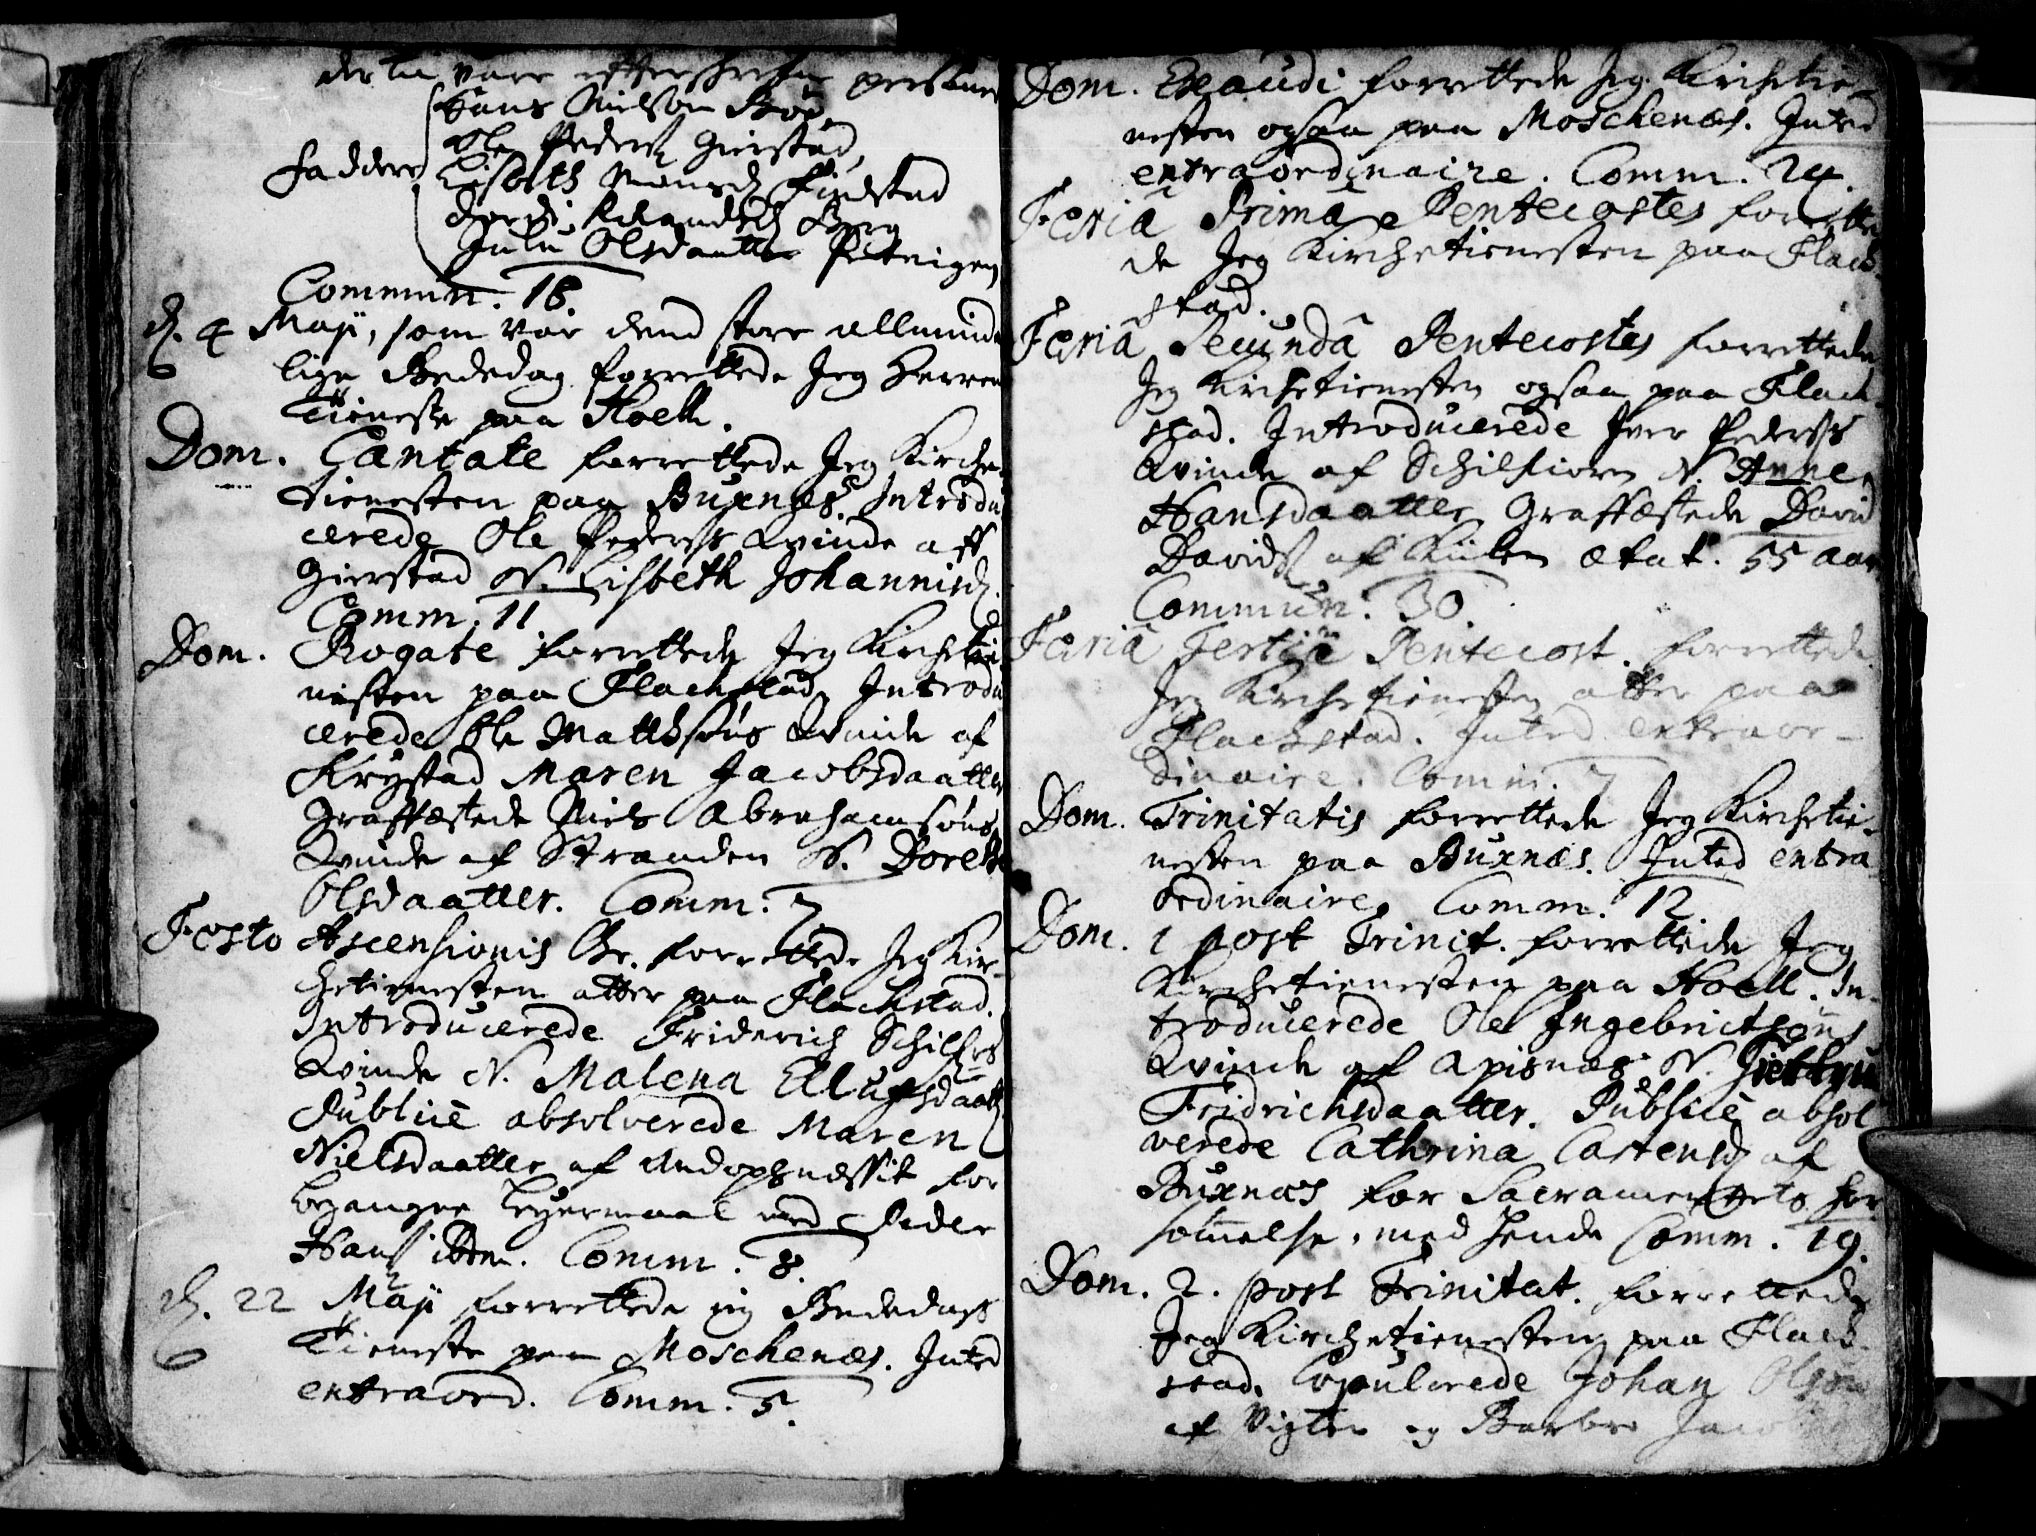 der til vare efterskrefne personer
Hans Nielsøn Böe
Ole Peders Gierstad
Faddere Lisbeth Monsd Findstad
Dorthe Amundsd Berg
Julu Olsdaatter Petvigen
Commun. 18.
d. 4 Maji, som var dend store allminde
lige Bededag forrettede Jeg Herrens
Tieneste paa Hoell.
Dom. Cantate forrettede Jeg Kirche
tienesten paa Buxnæs. Introdu
cerede Ole Peders Qvinde aff
Gierstad N. Lisbeth Johannisd.
Comm. 11
Dom. Rogate forrettede Jeg Kirchetie
nesten paa Flachstad, Introdu
cerede Ole Mattessøns Qvinde af
Krystad Maren Jacobsdaatter
Graffæstede Niels Abrahamsøns
Qvinde af Stranden N. Dorethe
Olsdaatter. Comm. 7.
Festo Ascensionis Chr. forrettede Jeg Kir-
chetienesten atter paa Flachstad.
Introducerede Friderich Schilfers
Qvinde N. Malena Ellufsdaatter
Publicè absolverede Maren
Nielsdaatter af Andopsnæssit for
begangne Leyermaal med Peder
Hans ibdm. Comm. 8.
d. 22 Maji forrettede jeg Bededags
Tieneste paa Moschenæs. Inted
extraord. Comm. 5.
Dom. Exaudi forrettede Jeg Kirchetie-
nesten ogsaa paa Moschenæs. Inted
extraordinaire. Comm. 24.
Feriâ Primâ Pentecostes forrette
de Jeg Kirchetienesten paa Flach-
stad.
Feria Secundâ Pentecostes forrettede
Jeg Kirchetienesten ogsaa paa Flach-
stad. Introducerede Iver Peders
Qvinde af Schilfiorn N. Anne
Hansdaatter Graffæstede David
Davids af ætat. 55 aar
Commun. 30.
Feriâ Tertiâ Pentecost. forrettede
Jeg Kirchetienesten atter paa
Flachstad. Inted extraor-
dinaire. Comm. 7
Dom. Trinitatis forrettede Jeg Kirchetie-
nesten paa Buxnæs. Inted extra
ordinaire. Comm. 12
Dom. 1 post Trinit. forrettede Jeg
Kirchetienesten paa Hoell. In-
troducerede Ole Ingebrictsøns
Qvinde af Apisnæs N.
Fridrichsdaatter. Publicè absol
verede Cathrina Castensd af
Buxnæs for Sacramentets for
sømelse, med hende Comm. 19.
Dom. 2. post Trinitat. forrettede
Jeg Kirchetienesten paa Flach-
stad. Copulerede Johan Olsøn
af Vigten og Barbro